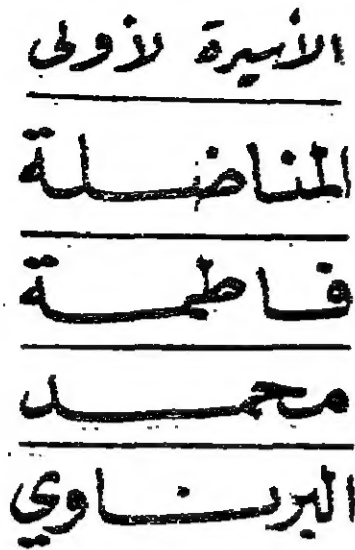 الأسيرة لأولى
المناضلة
فاطمة
محمد
البرناوي